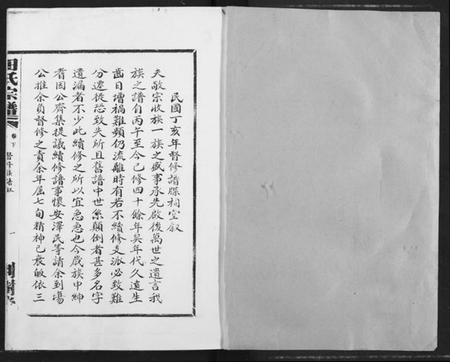 民國丁亥年督修譜牒祠堂叙
夫敬宗收族一族之盛事承先啟後萬世之遺言我
族之譜自丙午至今已修四十餘年矣年代久遠生
齒日增禍難頻仍流離時有若不續修支派必致難
分遷徙恐致失所且舊譜中世系顛倒者甚多名字
遺漏者不少此續修之所以宜急急也今歲族中紳
耆因公齊集提議續修譜事懷安澤民等請余到塲
公推余負督修之責余年屆七旬精神已衰敏依三
氏宗譜
卷下
一